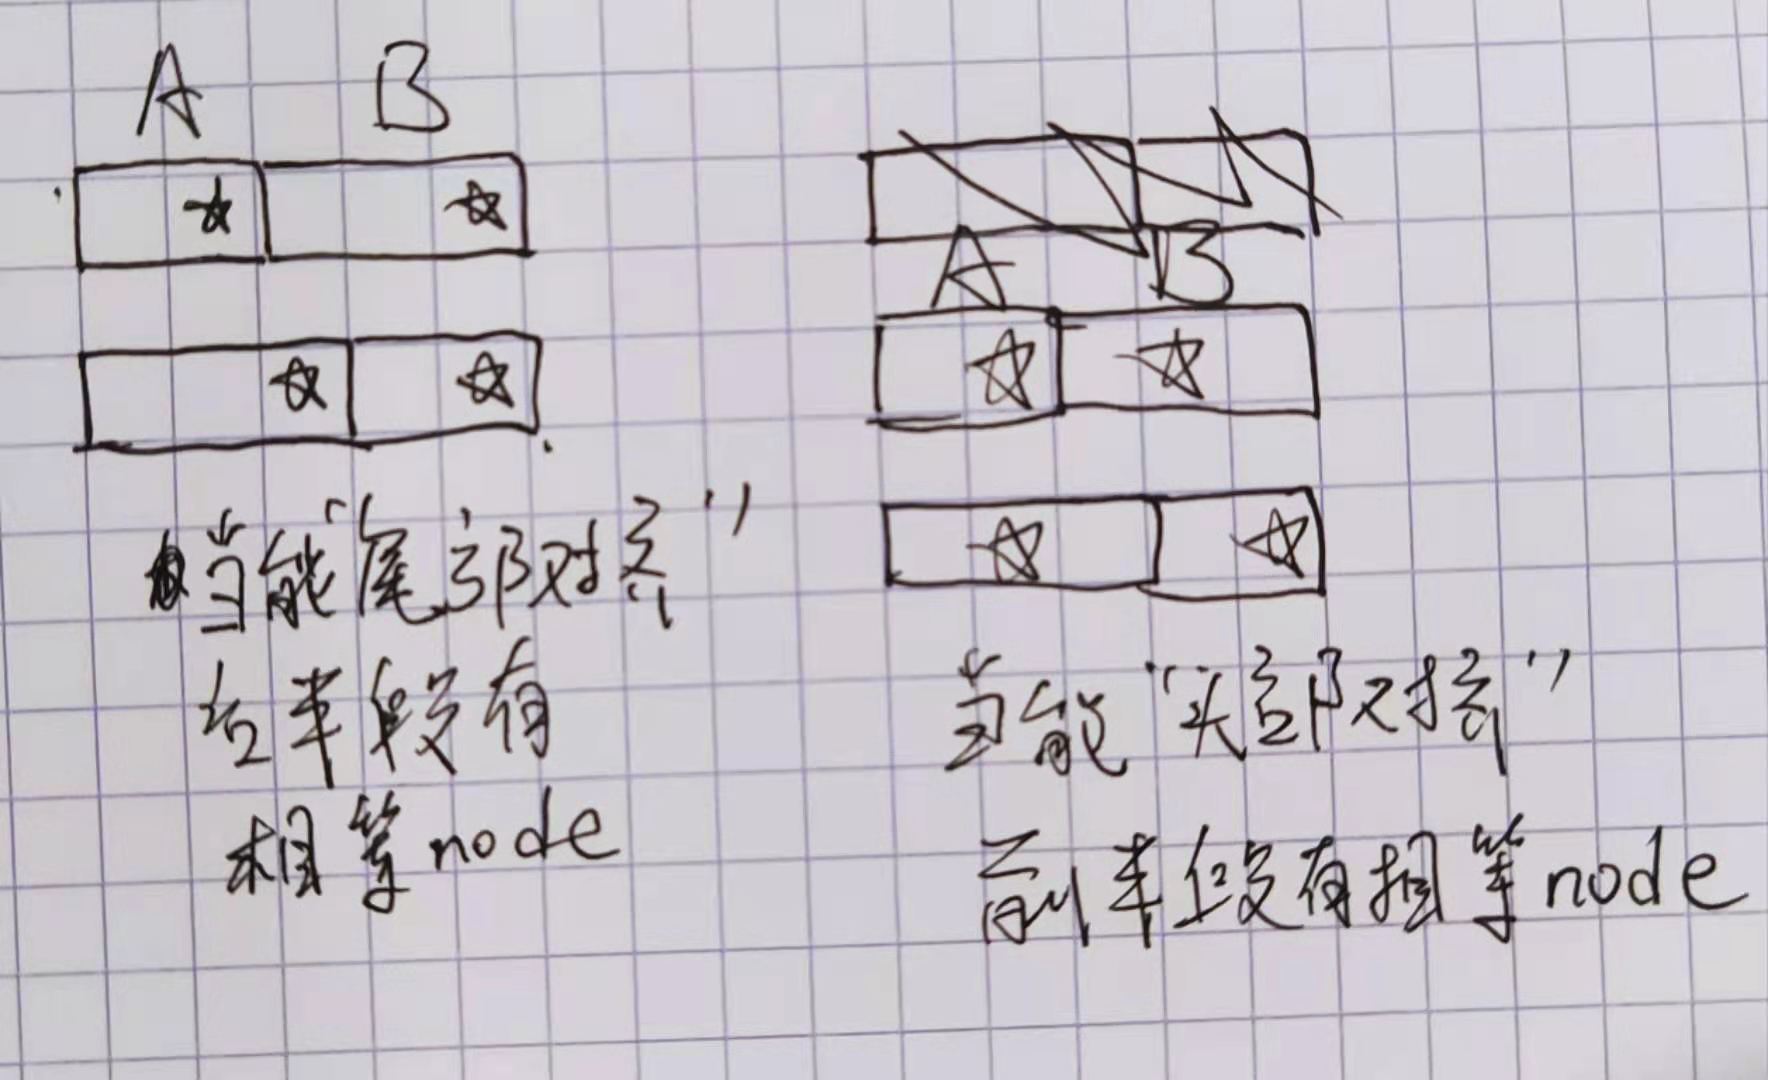 A B
当能“尾部对齐”
后半段有
相等node
A B
当能“头部对齐”
前半段有相等node